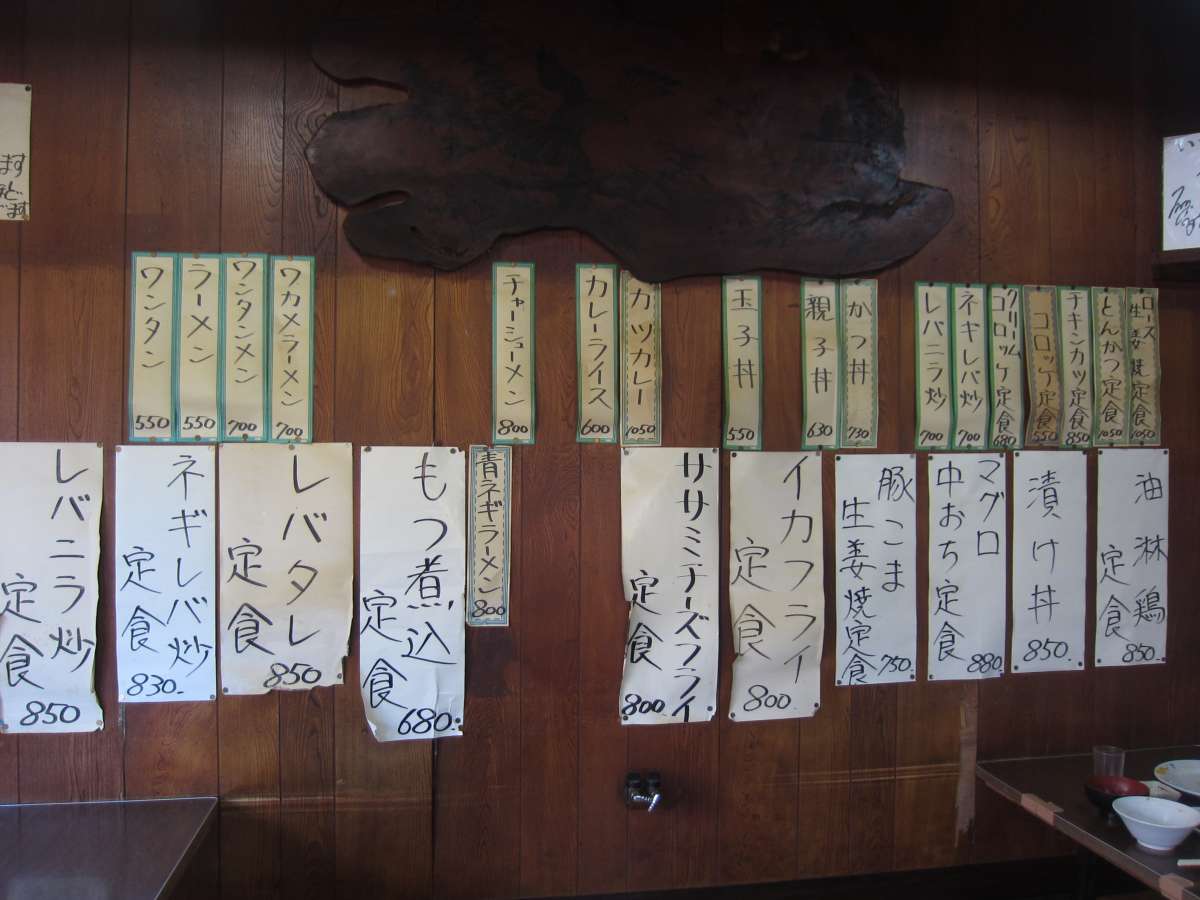 ます
ワンタン
550
ラーメン
550
ワンタンメン
700
ワカメラーメン
700
チャーシューメン
800
カレーライス
600
カツカレー
1050
玉子丼
550
親子丼
630
かつ丼
730
レバニラ炒
700
ネギレバ炒
700
クリーム
コロッケ定食
680
コロッケ定食
550
チキンカツ定食
850
とんかつ定食
1050
ロース
生姜焼定食
1050
レバニラ炒
定食
850
ネギレバ炒
定食
830-
レバタレ
定食
850
もつ煮込
定食
680-
青ネギラーメン
800
ササミチーズフライ
定食
800
イカフライ
定食
800
豚こま
生姜焼定食
750-
マグロ
中おち定食
880-
漬け丼
850-
油淋鶏
定食
850-